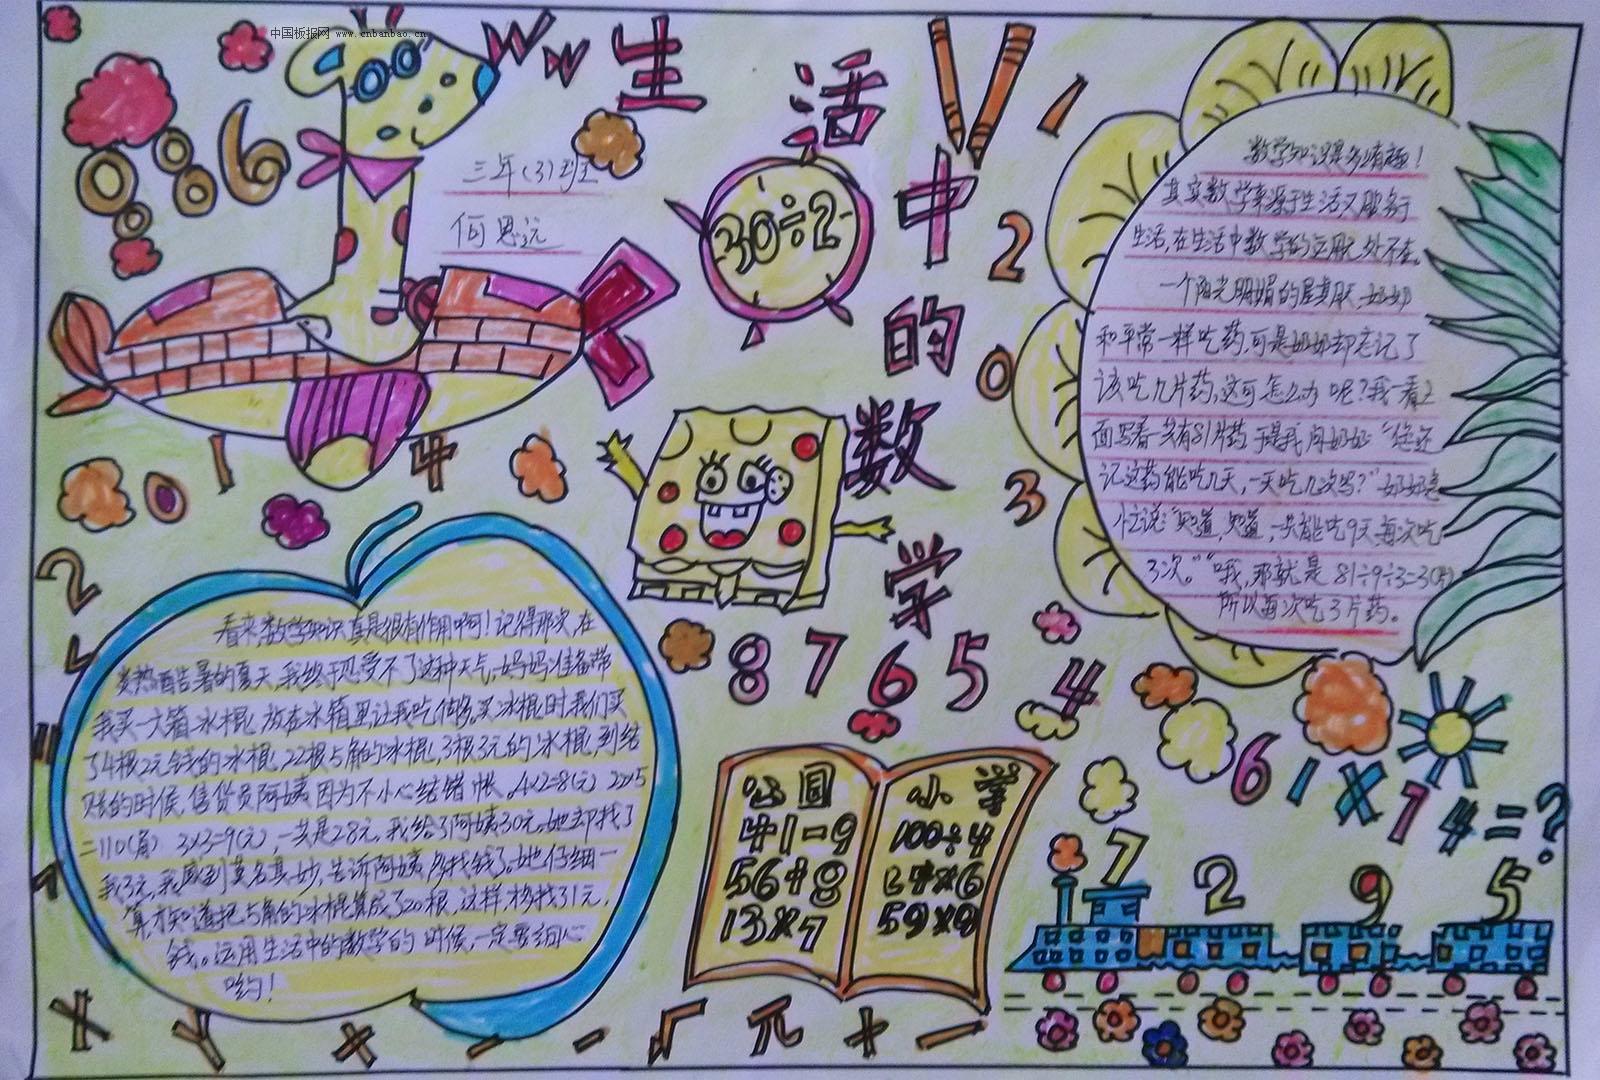 中国板报网 www.cnbanbao.cn
生活中的数学
三年(3)班
30÷2
数学知识是多有趣！
其实数学来源于生活又服务于
生活,在生活中数学的运用处不在。
一个阳光明媚的星期天,奶奶
和平常一样吃药,可是奶奶却忘记了
该吃几片药,这可怎么办呢？我一看上
面写着一共有81片药于是我问奶奶"您还
记这药能吃几天,一天吃几次吗？"奶奶急
忙说："知道,知道,一共能吃9天每次吃
3次。""哦,那就是81÷9÷3=3(片)
所以每次吃3片药。
看来,数学知识真是很有作用啊！记得那次,在
炎热酷暑的夏天,我终于忍受不了这种天气,妈妈准备带
我买一大箱冰棍,放在冰箱里让我吃个够,买冰棍时我们买
了4根2元钱的冰棍,22根5角的冰棍,3根3元的冰棍,到结
账的时候,售货员阿姨因为不小心结错帐。4×2=8(元) 22×5
=110(角) 3×3=9(元),一共是28元,我给了阿姨30元。她却找了
我3元,我感到莫名其妙,告诉阿姨多找钱了。她仔细一
算才知道把5角的冰棍算成了20根,这样,移找31元,
钱。运用生活中的数学的时候,一定要细心
哟！
公园 小学
41-9 100÷4
56+8 24×6
13×7 59×9
0 8 6
1
2
0
3
4
5
6
7
8
4
2
61×74=?
7 2 9 5
√ π + －